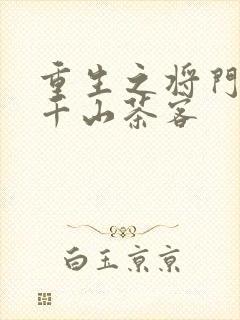 重生之将門
千山茶客
白玉京京